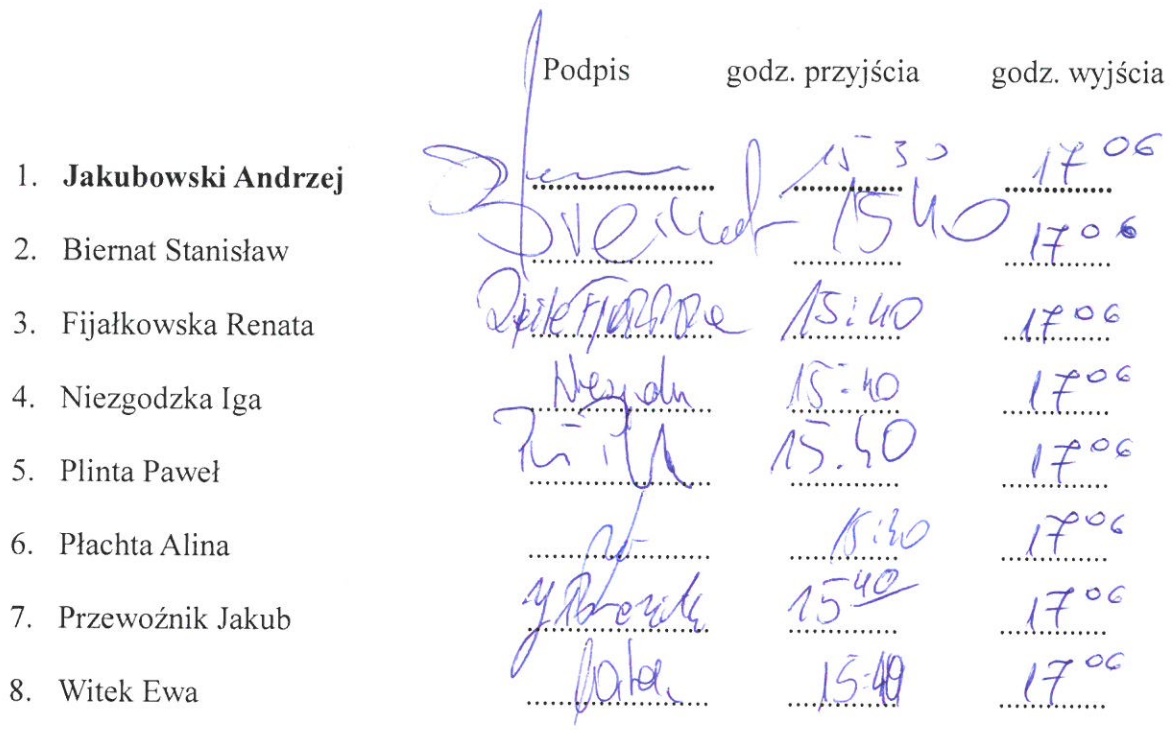 Podpis godz. przyjścia godz. wyjścia
1. Jakubowski Andrzej 15 30 17 06
2. Biernat Stanisław Biernat 15 40 17 06
3. Fijałkowska Renata 15:40 17 06
4. Niezgodzka Iga 15:40 17 06
5. Plinta Paweł 15.40 17 06
6. Płachta Alina 17 06
7. Przewoźnik Jakub 15 40 17 06
8. Witek Ewa 17 06